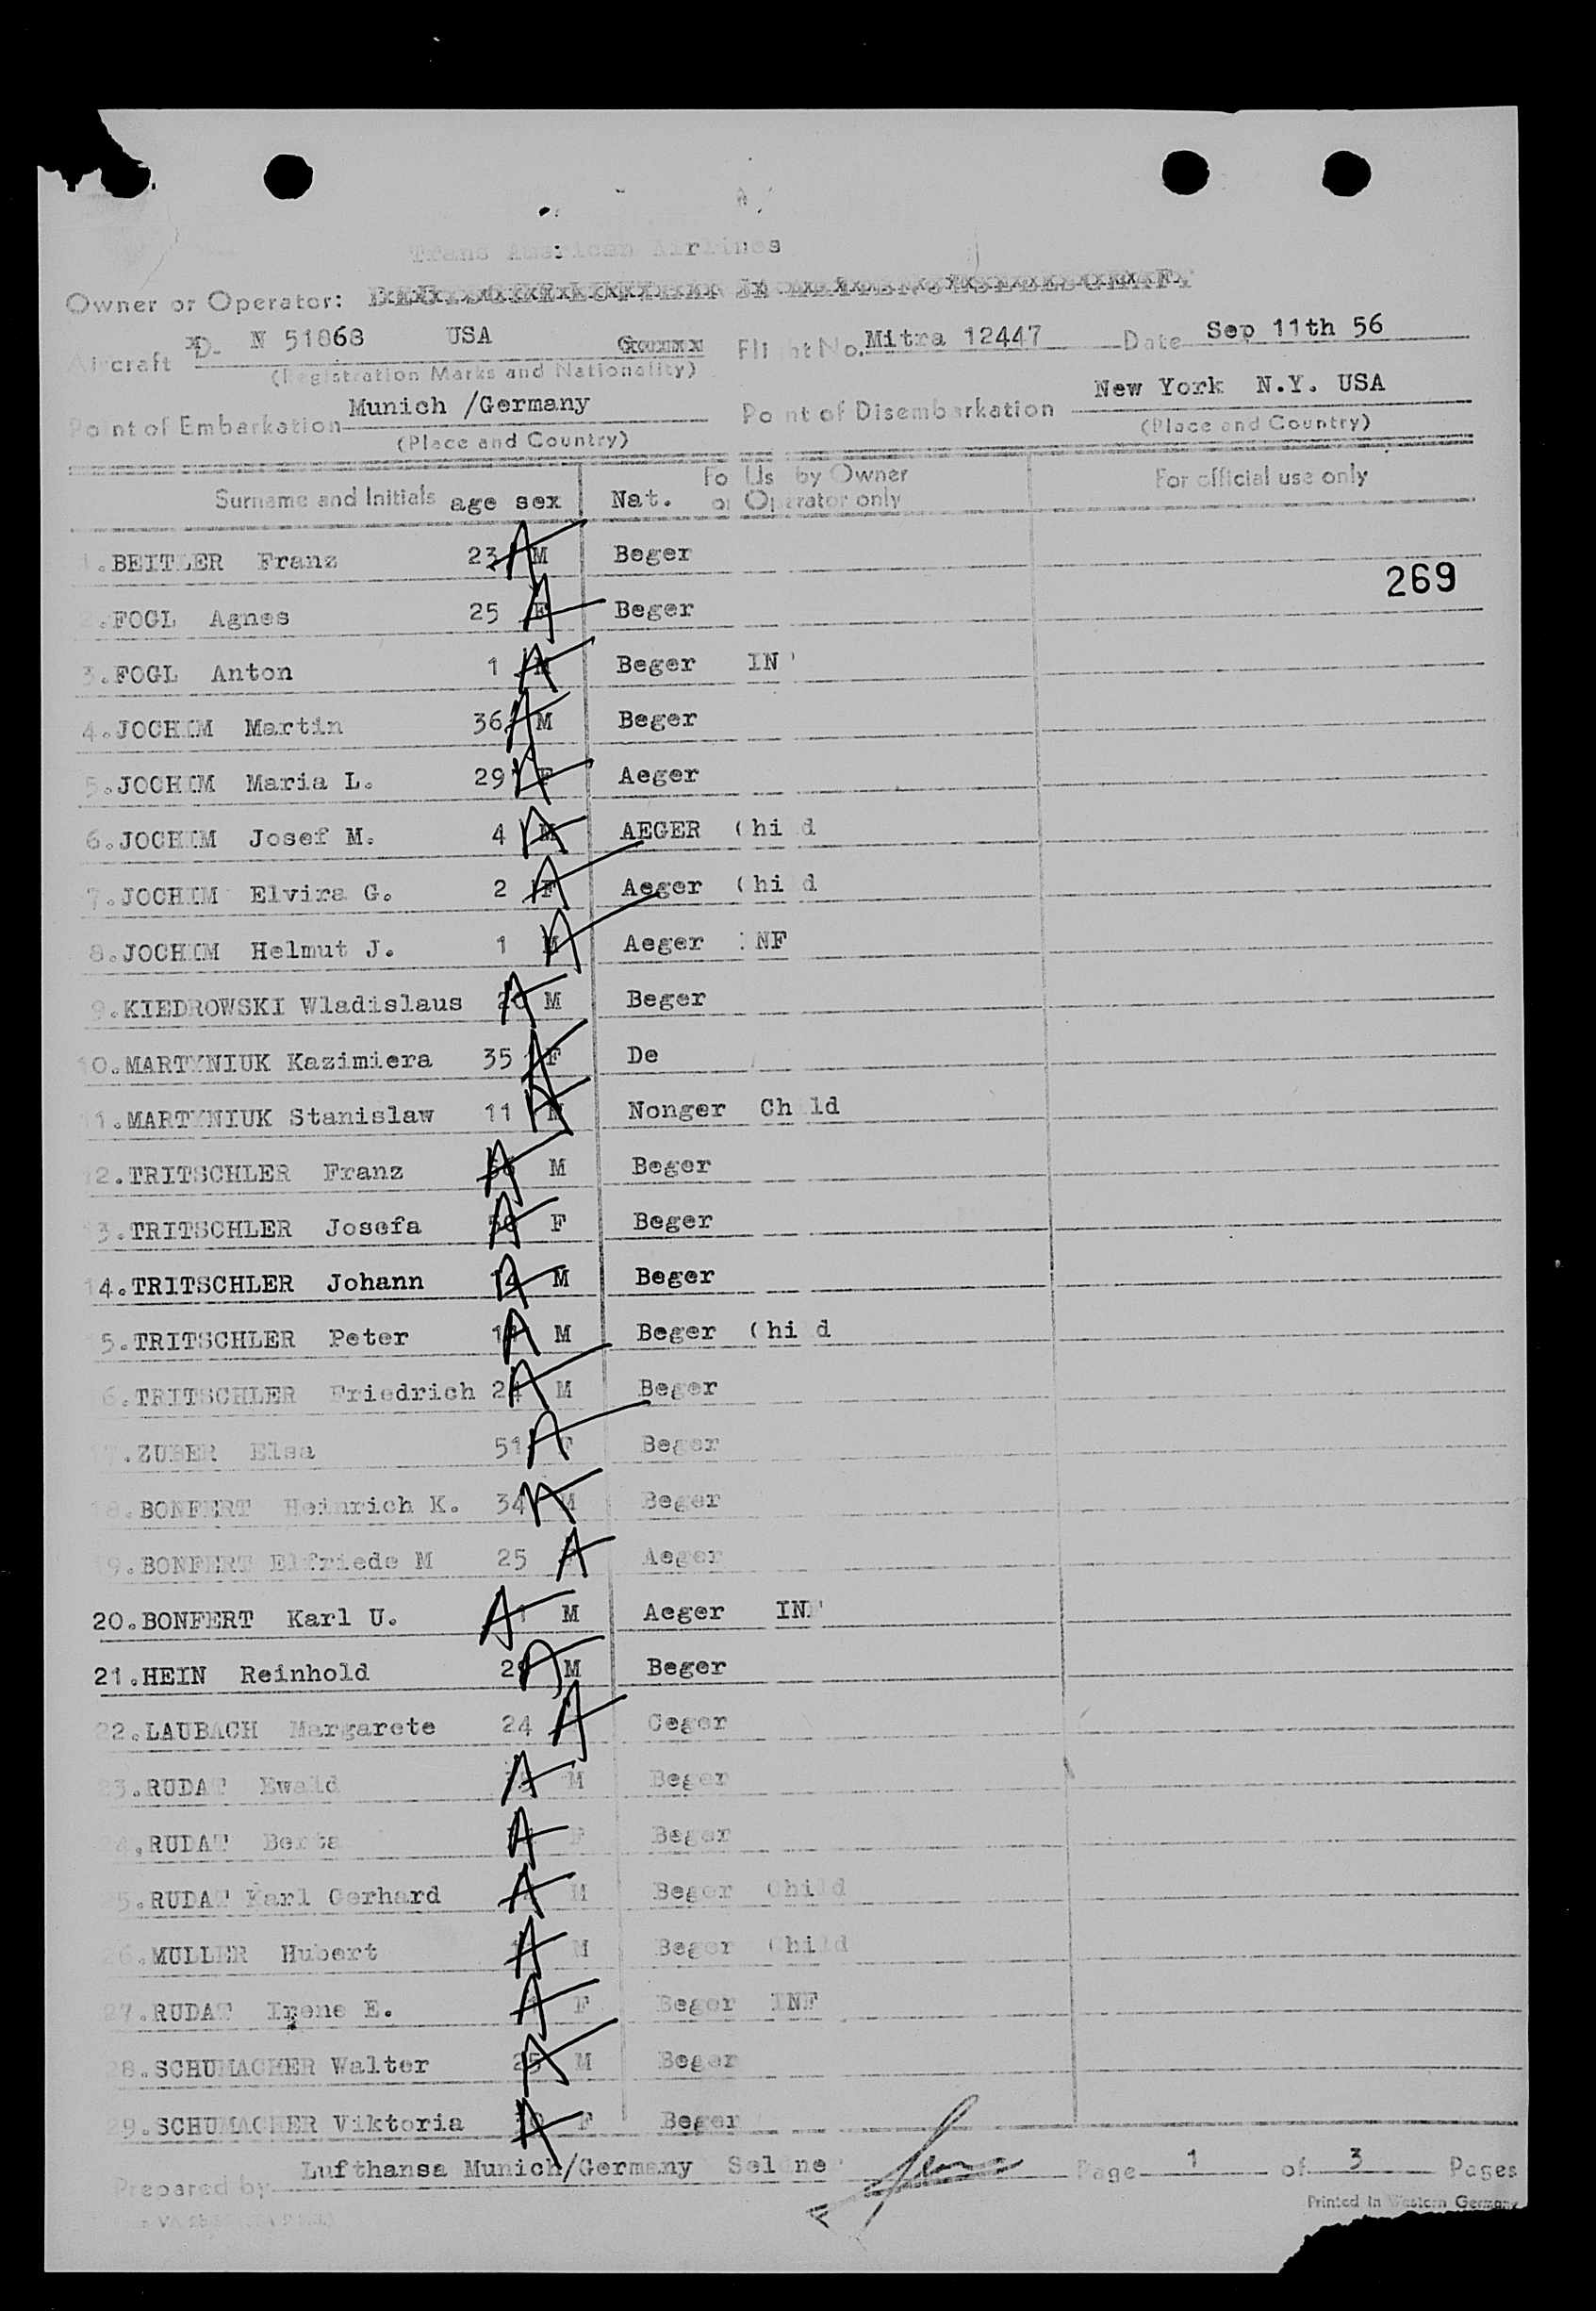 Trans American Airlines
Owner or Operator:
Aircraft D- N 51868 USA Flight No. Mitra 12447 Date Sep 11th 56
(Registration Marks and Nationality)
Point of Embarkation Munich /Germany Point of Disembarkation New York N.Y. USA
(Place and Country) (Place and Country)
Surname and Initials age sex Nat. For Use by Owner or Operator only For official use only
1.BEITLER Franz 23 M Beger
269
2.FOGL Agnes 25 F Beger
3.FOGL Anton 1 M Beger IN
4.JOCHIM Martin 36 M Beger
5.JOCHIM Maria L. 29 F Aeger
6.JOCHIM Josef M. 4 M AEGER Child
7.JOCHIM Elvira G. 2 F Aeger Child
8.JOCHIM Helmut J. 1 M Aeger INF
9.KIEDROWSKI Wladislaus M Beger
10.MARTYNIUK Kazimiera 35 F De
11.MARTYNIUK Stanislaw 11 M Nonger Child
12.TRITSCHLER Franz M Beger
13.TRITSCHLER Josefa F Beger
14.TRITSCHLER Johann M Beger
15.TRITSCHLER Peter M Beger Child
16.TRITSCHLER Friedrich 24 M Beger
17.ZUBER Elsa 51 F Beger
18.BONFERT Heinrich K. 34 M Beger
19.BONFERT Elfriede M 25 Aeger
20.BONFERT Karl U. 1 M Aeger INF
21.HEIN Reinhold M Beger
22.LAUBACH Margarete 24 Ceger
23.RUDAT Ewald M Beger
24.RUDAT Berta F Beger
25.RUDAT Karl Gerhard M Beger Child
26.MULLER Hubert M Beger Child
27.RUDAT Irene E. F Beger INF
28.SCHUMACHER Walter 25 M Beger
29.SCHUMACHER Viktoria F Beger
Prepared by Lufthansa Munich/Germany Page 1 of 3 Pages
Printed in Western Germany